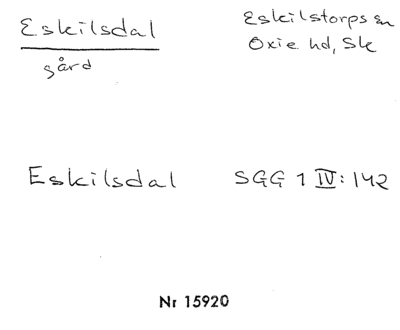 Eskilsdal
gård
Eskilstorps sn
Oxie hd, Sk
Eskilsdal SGG 1 IV: 142
Nr 15920